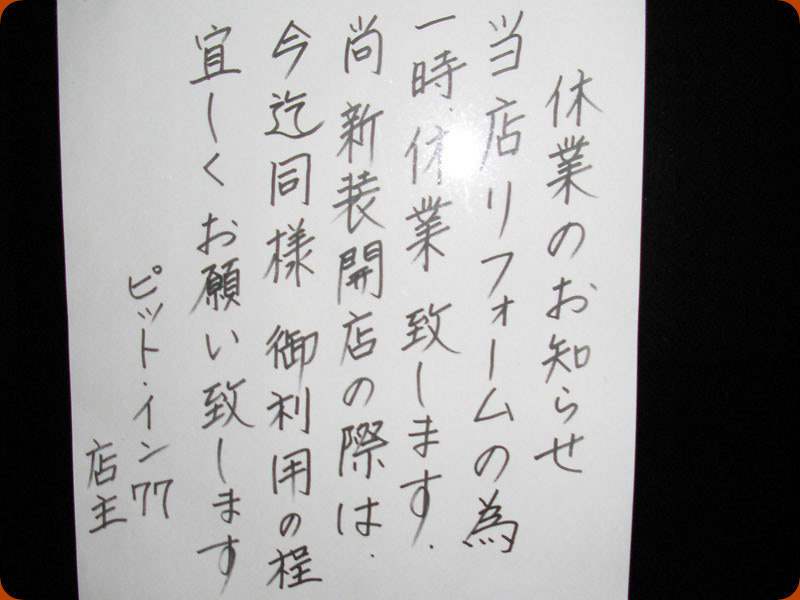 休業のお知らせ
当店リフォームの為
一時休業致します.
尚新装開店の際は.
今迄同様御利用の程
宜しくお願い致します
ピット・イン77
店主